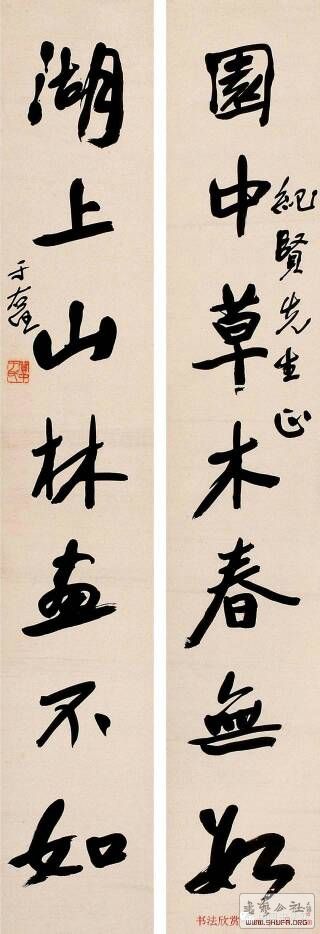 紀賢先生正
園中草木春無數
湖上山林畫不如
于右任
书法欣赏
书艺公社
WWW.SHUFA.ORG